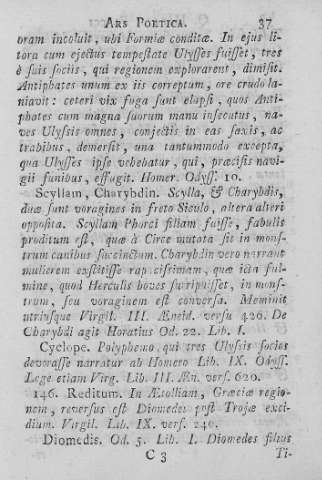 ARS POETICA. 37
oram incoluit, ubi Formiæ conditæ. In ejus li-
tora cum ejectus tempestate Ulysses fuisset, tres
è suis sociis, qui regionem explorarent, dimisit.
Antiphates unum ex iis correptum, ore crudo la-
niavit: ceteri vix fuga sunt elapsi, quos Anti-
phates cum magna suorum manu insecutus, na-
ves Ulyssis omnes, conjectis in eas saxis, ac
trabibus, demersit, una tantummodo excepta,
qua Ulysses ipse vehebatur, qui, præcisis navi-
gii funibus, effugit. Homer. Odyss. 10.
Scyllam, Charybdin. Scylla, & Charybdis,
duæ sunt voragines in freto Siculo, altera alteri
opposita. Scyllam Phorci filiam fuisse, fabulis
proditum est, quæ à Circe mutata sit in mons-
trum canibus succinctum. Charybdin vero narrant
mulierem exstitisse rapacissimam, quæ icta ful-
mine, quod Herculis boves surripuisset, in mons-
trum, seu voraginem est conversa. Meminit
utriusque Virgil. III. Æneid. versu 420. De
Charybdi agit Horatius Od. 22. Lib. I.
Cyclope. Polyphemo, qui tres Ulyssis socios
devorasse narratur ab Homero Lib. IX. Odyss.
Lege etiam Virg. Lib. III. Æn. vers. 620.
146. Reditum. In Ætolliam, Græciæ regio-
nem, reversus est Diomedes post Trojæ exci-
dium. Virgil. Lib. IX. vers. 240.
Diomedis. Od. 5. Lib. I. Diomedes filius
C 3 Ti-